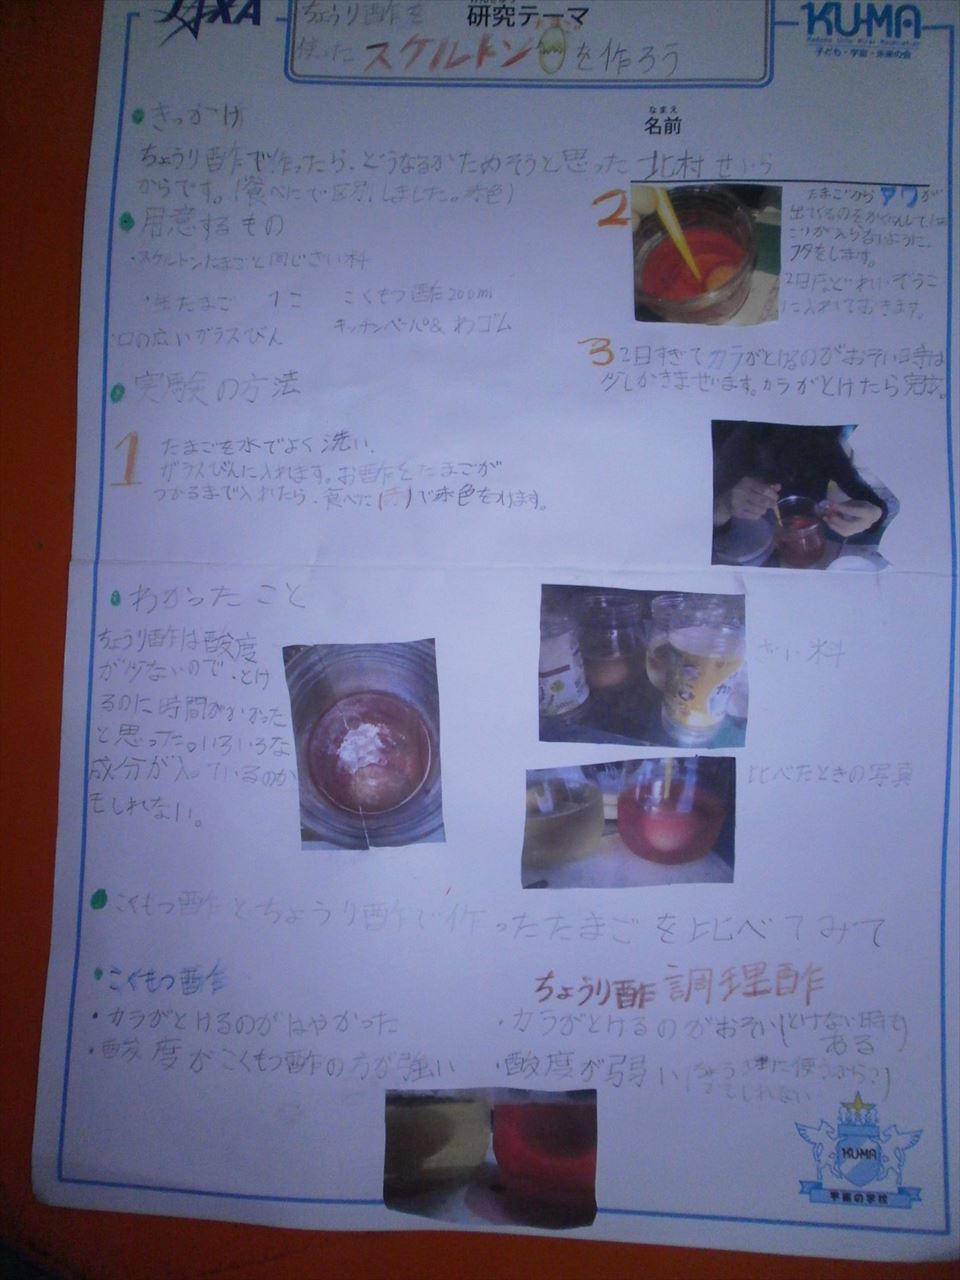 JAXA
研究テーマ
ちょうり酢を
使ったスケルトンを作ろう
KU-MA
子ども・宇宙・未来の会
きっかけ
なまえ
名前
ちょうり酢で作ったら、どうなるかためそうと思った
からです。(食べにで区別しました。赤色)
北村
用意するもの
・スケルトンたまごと同じざい料
・生たまご 1こ こくもつ酢200ml
口の広いガラスびん キッチンペーパー&わゴム
実験の方法
1
たまごを水でよく洗い、
ガラスびんに入れます。お酢をたまごが
つかるまで入れたら、食べに(赤)で赤色をつけます。
2
たまごからアワが
出てくるのをかくにんして、ほ
こりが入らないように、
フタをします。
2日ほどれいぞうこ
に入れておきます。
3 2日すぎてカラがとけるのがおそい時は
少しかきまぜます。カラがとけたら完成。
わかったこと
ちょうり酢は酸度
が少ないので、とけ
るのに時間がかかった
と思った。いろいろな
成分が入っているのか
もしれない。
ざい料
比べたときの写真
こくもつ酢とちょうり酢で作ったたまごを比べてみて
こくもつ酢
・カラがとけるのがはやかった
・酸度がこくもつ酢の方が強い
ちょうり酢 調理酢
・カラがとけるのがおそい(とけない時も
ある)
・酸度が弱い
もしれない
KUMA
宇宙の学校